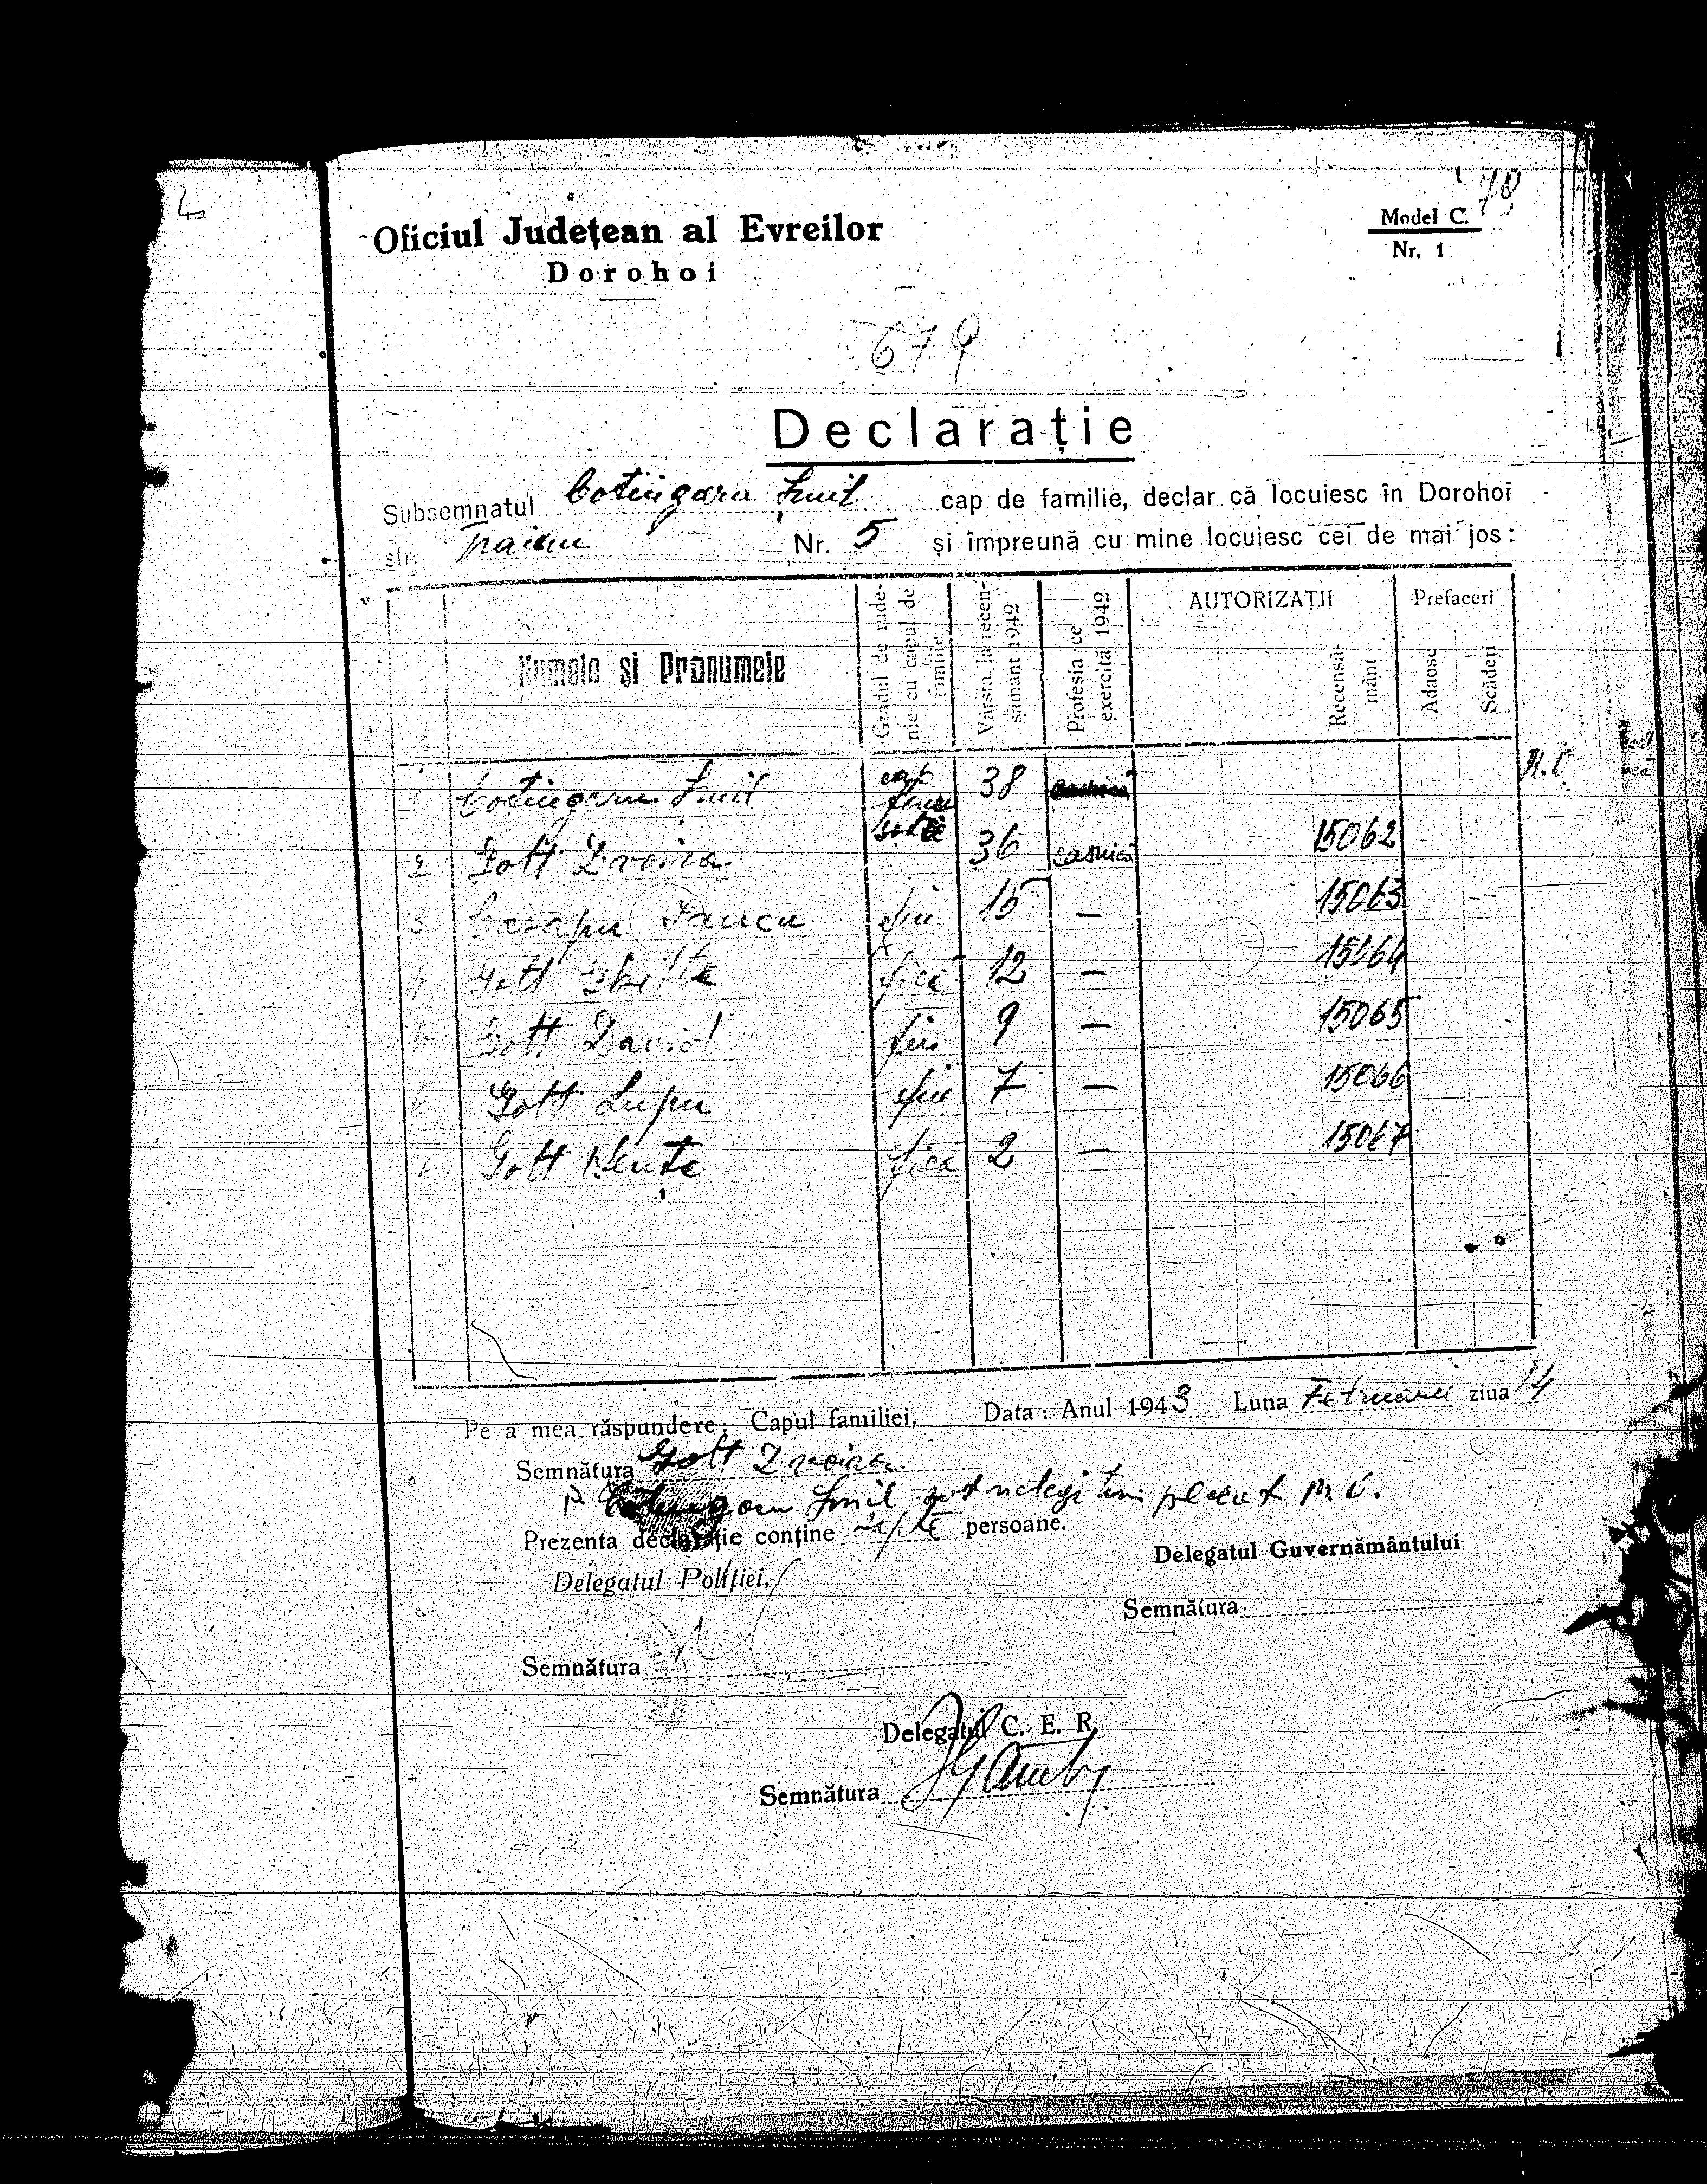 78
Oficiul Județean al Evreilor
Dorohoi
Model C.
Nr. 1
679
Declarație
Subsemnatul Cotiugaru Șmil cap de familie, declar că locuiesc în Dorohoi
str. Traian Nr. 5 și împreună cu mine locuiesc cei de mai jos:
Numele și Pronumele
Gradul de rudenie cu capul de familie
Vârsta la recensământ 1942
Profesia ce exercită 1942
AUTORIZAȚII
Recensământ
Prefaceri
Adaose
Scăderi
1 Cotiugaru Șmil cap fam 38
2 Gott Dvoira soție 36 casnică 15062
3 Iancu fiu 15 — 15063
4 Gott fică 12 — 15064
Gott David fiu 9 — 15065
6 Gott Lupu fiu 7 — 15066
Gott fică 2 — 15067
Pe a mea răspundere: Capul familiei, Data: Anul 1943 Luna Februarie ziua 14
Semnătura Gott Dvoira
p. Cotiugaru Șmil soț nelegitim plecat
Prezenta declarație conține șapte persoane.
Delegatul Poliției,
Delegatul Guvernământului
Semnătura
Semnătura
Delegatul C. E. R.
Semnătura